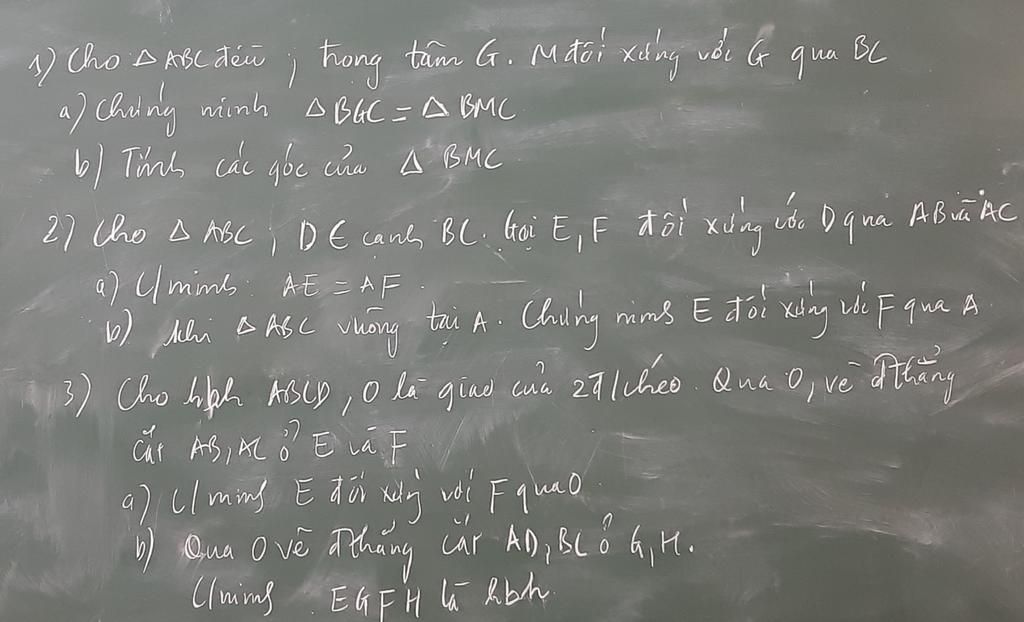 1) Cho △ ABC đều ; trọng tâm G. M đối xứng với G qua BC
a) Chứng minh △ BGC = △ BMC
b) Tính các góc của △ BMC
2) Cho △ ABC ; D ∈ cạnh BC. Gọi E, F đối xứng với D qua AB và AC
a) C/minh: AE = AF.
b) Khi △ ABC vuông tại A. Chứng minh E đối xứng với F qua A
3) Cho hbh ABCD, O là giao của 2 đ/chéo. Qua O, vẽ đthẳng
cắt AB, AC ở E và F
a) C/minh E đối xứng với F qua O
b) Qua O vẽ đthẳng cắt AD, BC ở G, H.
C/minh EGFH là hbh